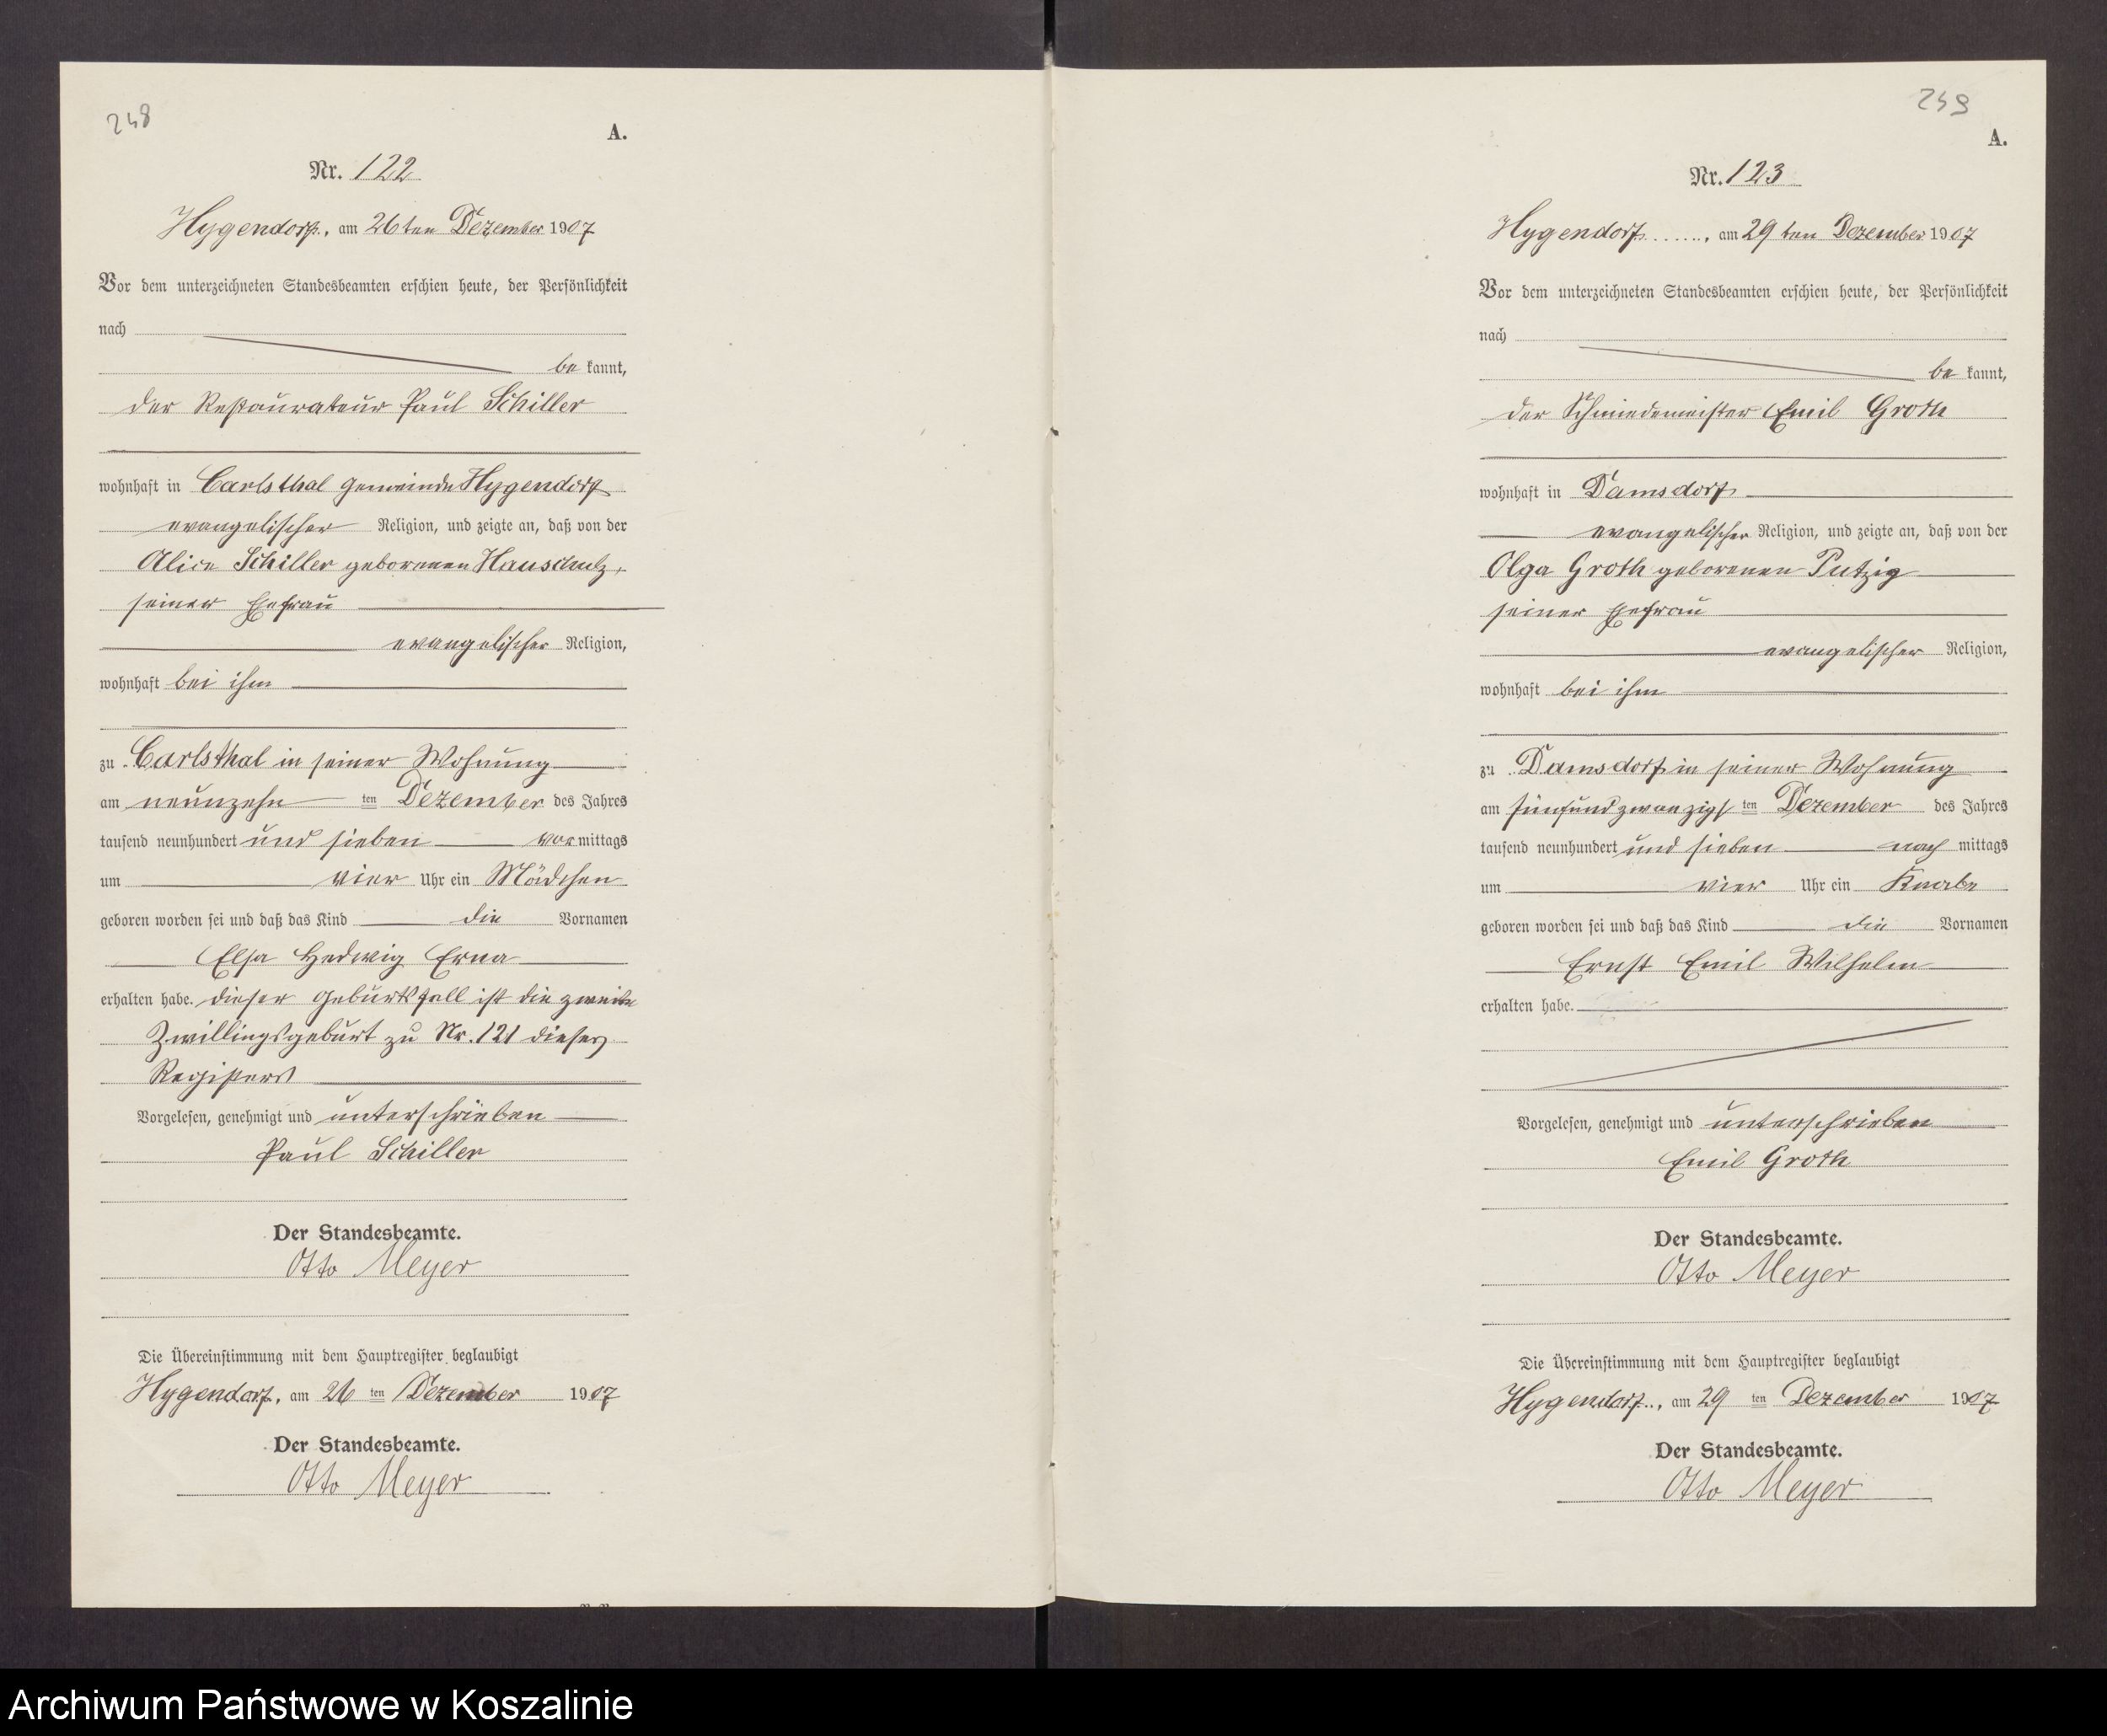 248
A.
Nr. 122
Hygendorf, am 26ten Dezember 1907
Vor dem unterzeichneten Standesbeamten erschien heute, der Persönlichkeit
nach
be kannt,
der Restaurateur Paul Schiller
wohnhaft in Carlsthal Gemeinde Hygendorf
evangelischer Religion, und zeigte an, daß von der
Alice Schiller geborenen Hauschulz,
seiner Ehefrau
evangelischer Religion,
wohnhaft bei ihm
zu Carlsthal in seiner Wohnung
am neunzehn ten Dezember des Jahres
tausend neunhundert und sieben vor mittags
um vier Uhr ein Mädchen
geboren worden sei und daß das Kind die Vornamen
Elsa Hedwig Erna
erhalten habe. dieser Geburtsfall ist die zweite
Zwillingsgeburt zu Nr. 121 dieses
Registers
Vorgelesen, genehmigt und unterschrieben
Paul Schiller
Der Standesbeamte.
Otto Meyer
Die Übereinstimmung mit dem Hauptregister beglaubigt
Hygendorf, am 26 ten Dezember 1907
Der Standesbeamte.
Otto Meyer
249
A.
Nr. 123
Hygendorf, am 29ten Dezember 1907
Vor dem unterzeichneten Standesbeamten erschien heute, der Persönlichkeit
nach
be kannt,
der Schmiedemeister Emil Groth
wohnhaft in Damsdorf
evangelischer Religion, und zeigte an, daß von der
Olga Groth geborenen Putzig
seiner Ehefrau
evangelischer Religion,
wohnhaft bei ihm
zu Damsdorf in seiner Wohnung
am fünfundzwanzigs ten Dezember des Jahres
tausend neunhundert und sieben nach mittags
um vier Uhr ein Knabe
geboren worden sei und daß das Kind die Vornamen
Ernst Emil Wilhelm
erhalten habe.
Vorgelesen, genehmigt und unterschrieben
Emil Groth
Der Standesbeamte.
Otto Meyer
Die Übereinstimmung mit dem Hauptregister beglaubigt
Hygendorf, am 29 ten Dezember 1907
Der Standesbeamte.
Otto Meyer
Archiwum Państwowe w Koszalinie